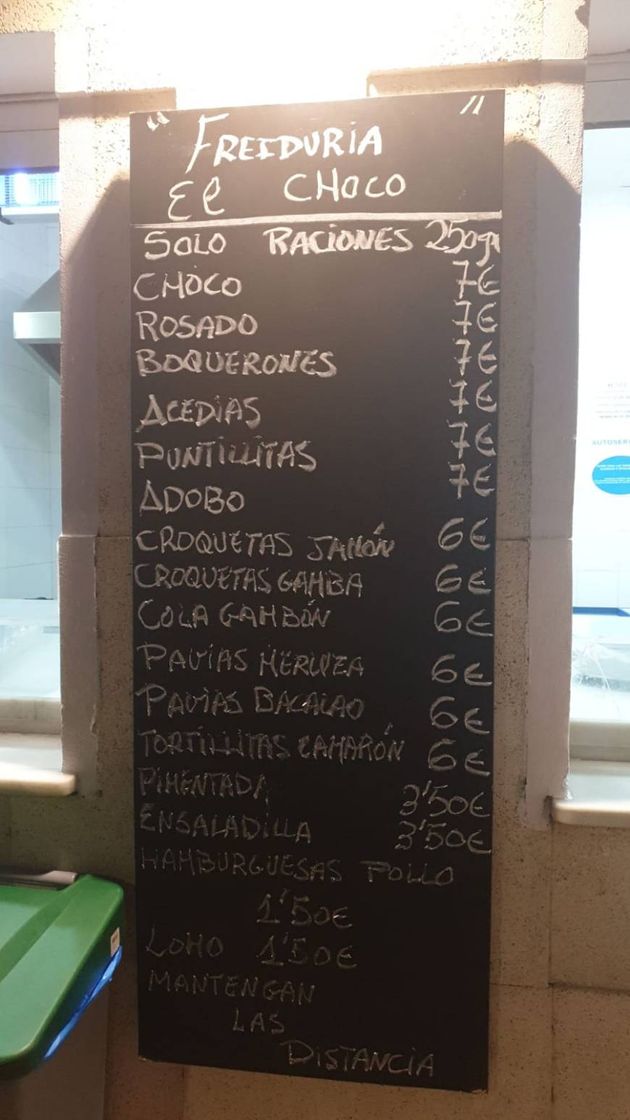 " FREIDURIA "
El CHOCO
SOLO RACIONES 250gr
CHOCO 7€
ROSADO 7€
BOQUERONES 7€
ACEDIAS 7€
PUNTILLITAS 7€
ADOBO 7€
CROQUETAS JAMÓN 6€
CROQUETAS GAMBA 6€
COLA GAMBÓN 6€
PAVIAS MERLUZA 6€
PAVIAS BACALAO 6€
TORTILLITAS CAMARÓN 6€
PIMENTADA 3'50€
ENSALADILLA 3'50€
HAMBURGUESAS POLLO
1'50€
LOMO 1'50€
MANTENGAN
LAS
DISTANCIA
AUTOSERV